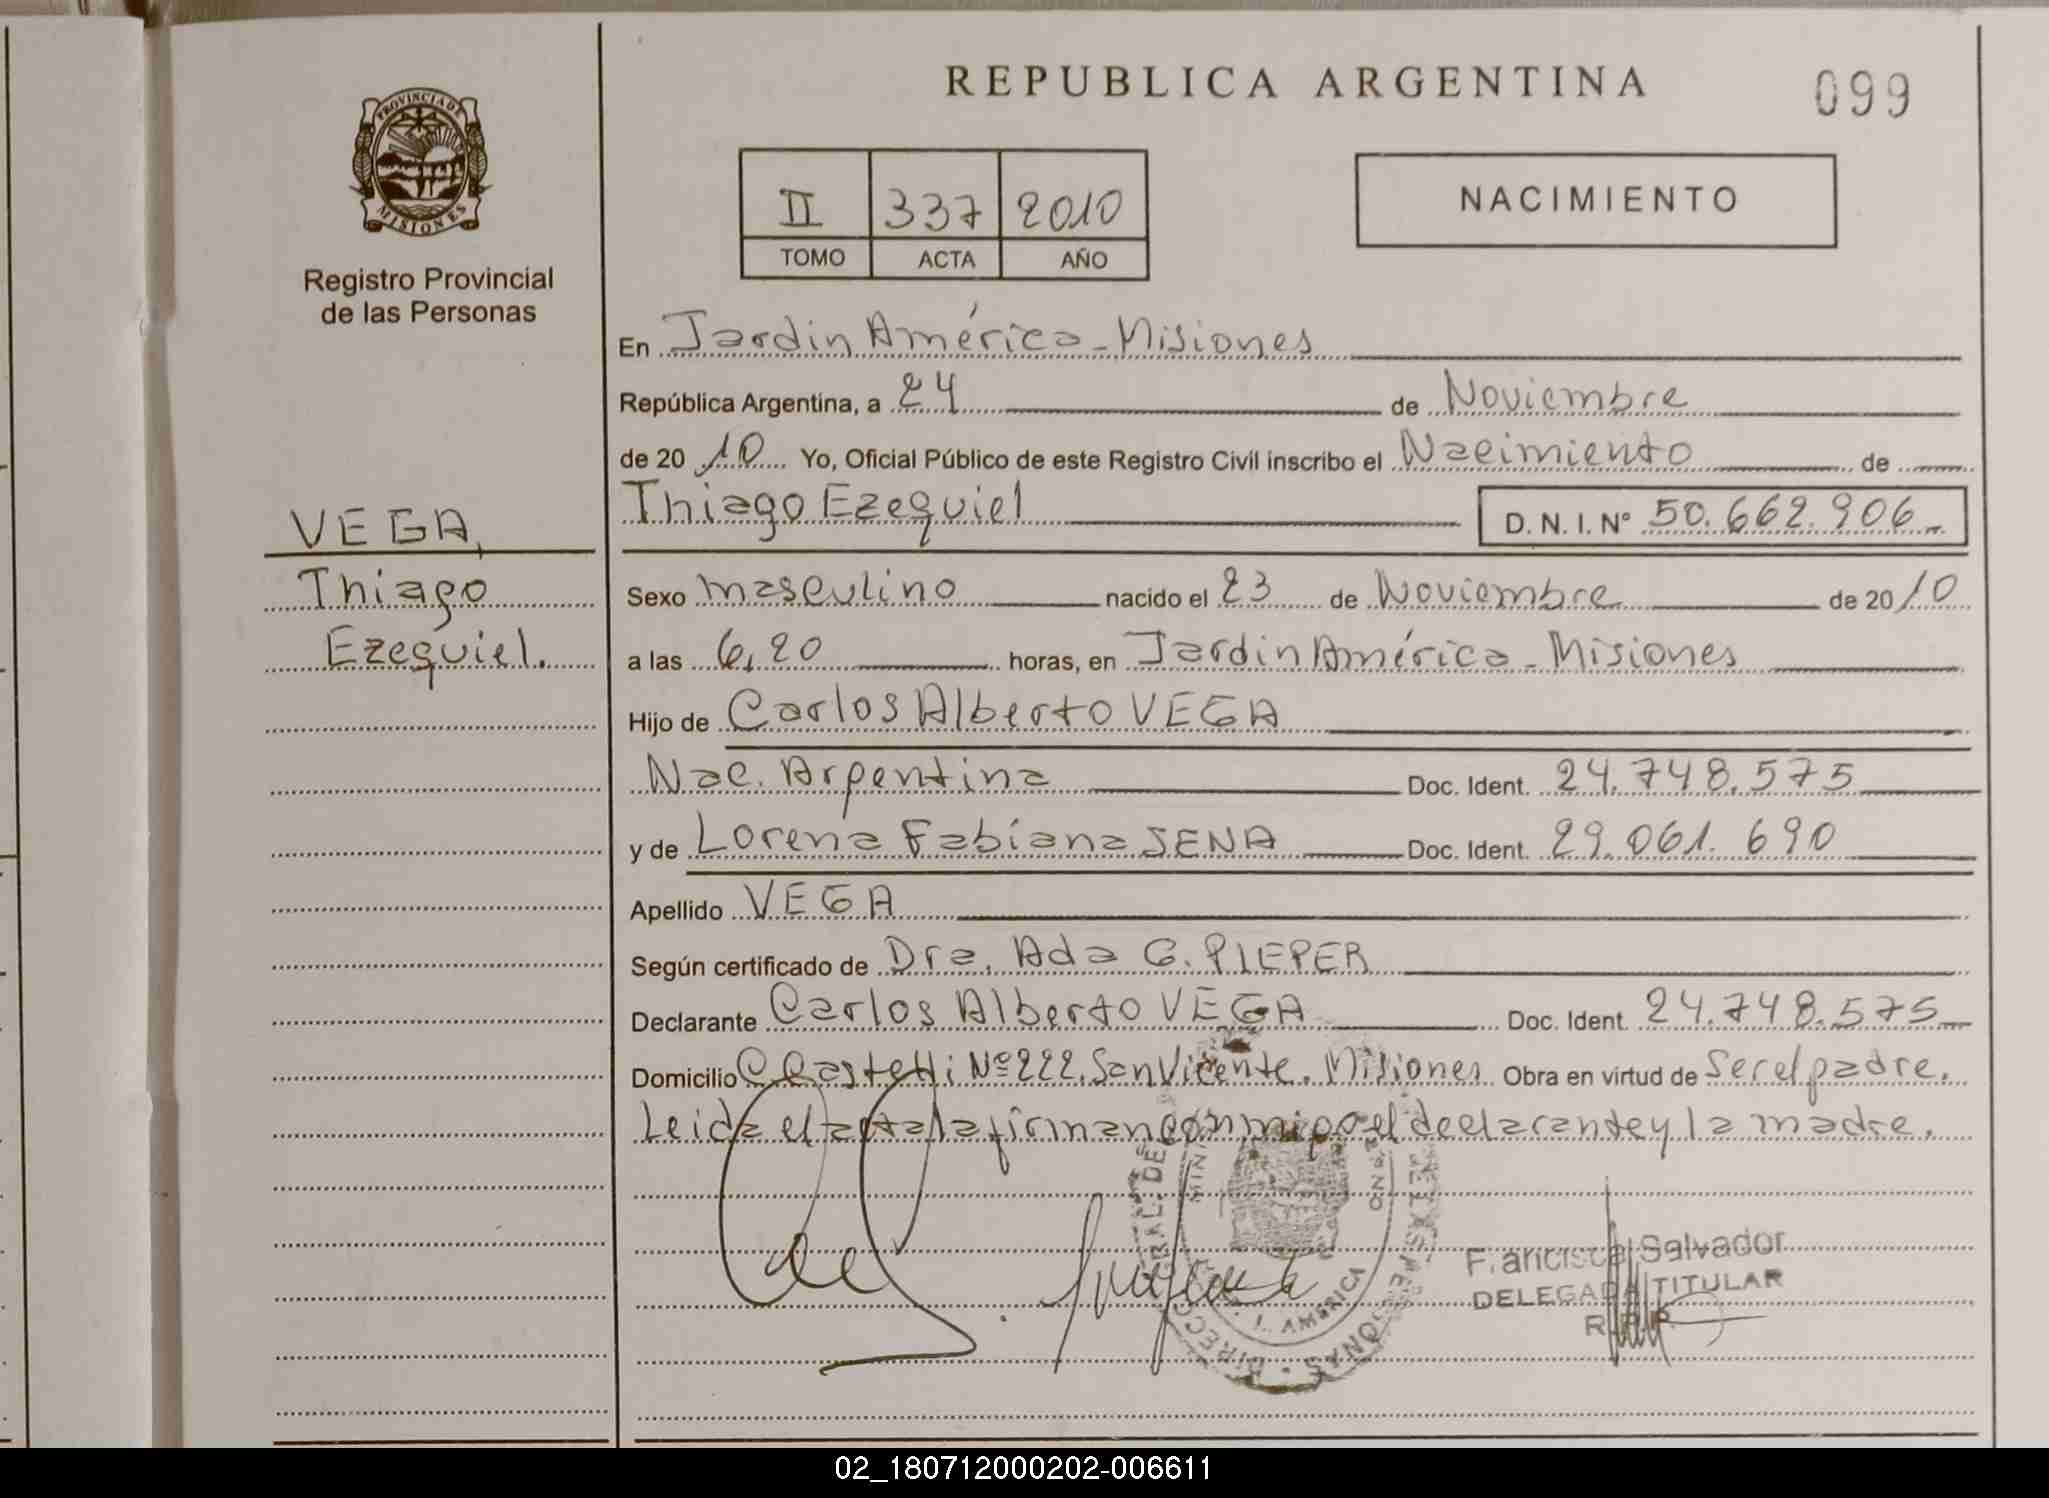 REPUBLICA ARGENTINA
099
PROVINCIA DE
MISIONES
Registro Provincial
de las Personas
II 337 2010
TOMO ACTA AÑO
NACIMIENTO
En Jardin América - Misiones
República Argentina, a 24 de Noviembre
de 20 10 Yo, Oficial Público de este Registro Civil inscribo el Nacimiento de
Thiago Ezequiel D. N. I. Nº 50.662.906
VEGA,
Thiago
Ezequiel.
Sexo masculino nacido el 23 de Noviembre de 20 10
a las 6,20 horas, en Jardin América - Misiones
Hijo de Carlos Alberto VEGA
Nac. Argentina Doc. Ident. 24.748.575
y de Lorena Fabiana SENA Doc. Ident. 29.061.690
Apellido VEGA
Según certificado de Dra. Ada G. PIEPER
Declarante Carlos Alberto VEGA Doc. Ident. 24.748.575
Domicilio C. Castelli Nº 222. San Vicente. Misiones Obra en virtud de Ser el padre.
Leida el acta la firman conmigo el declarante y la madre.
Francisca Salvador
DELEGADA TITULAR
R.P.P.
AMERICA
02_180712000202-006611